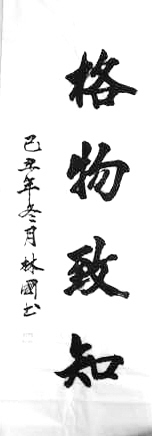 格物致知
己丑年冬月林國書